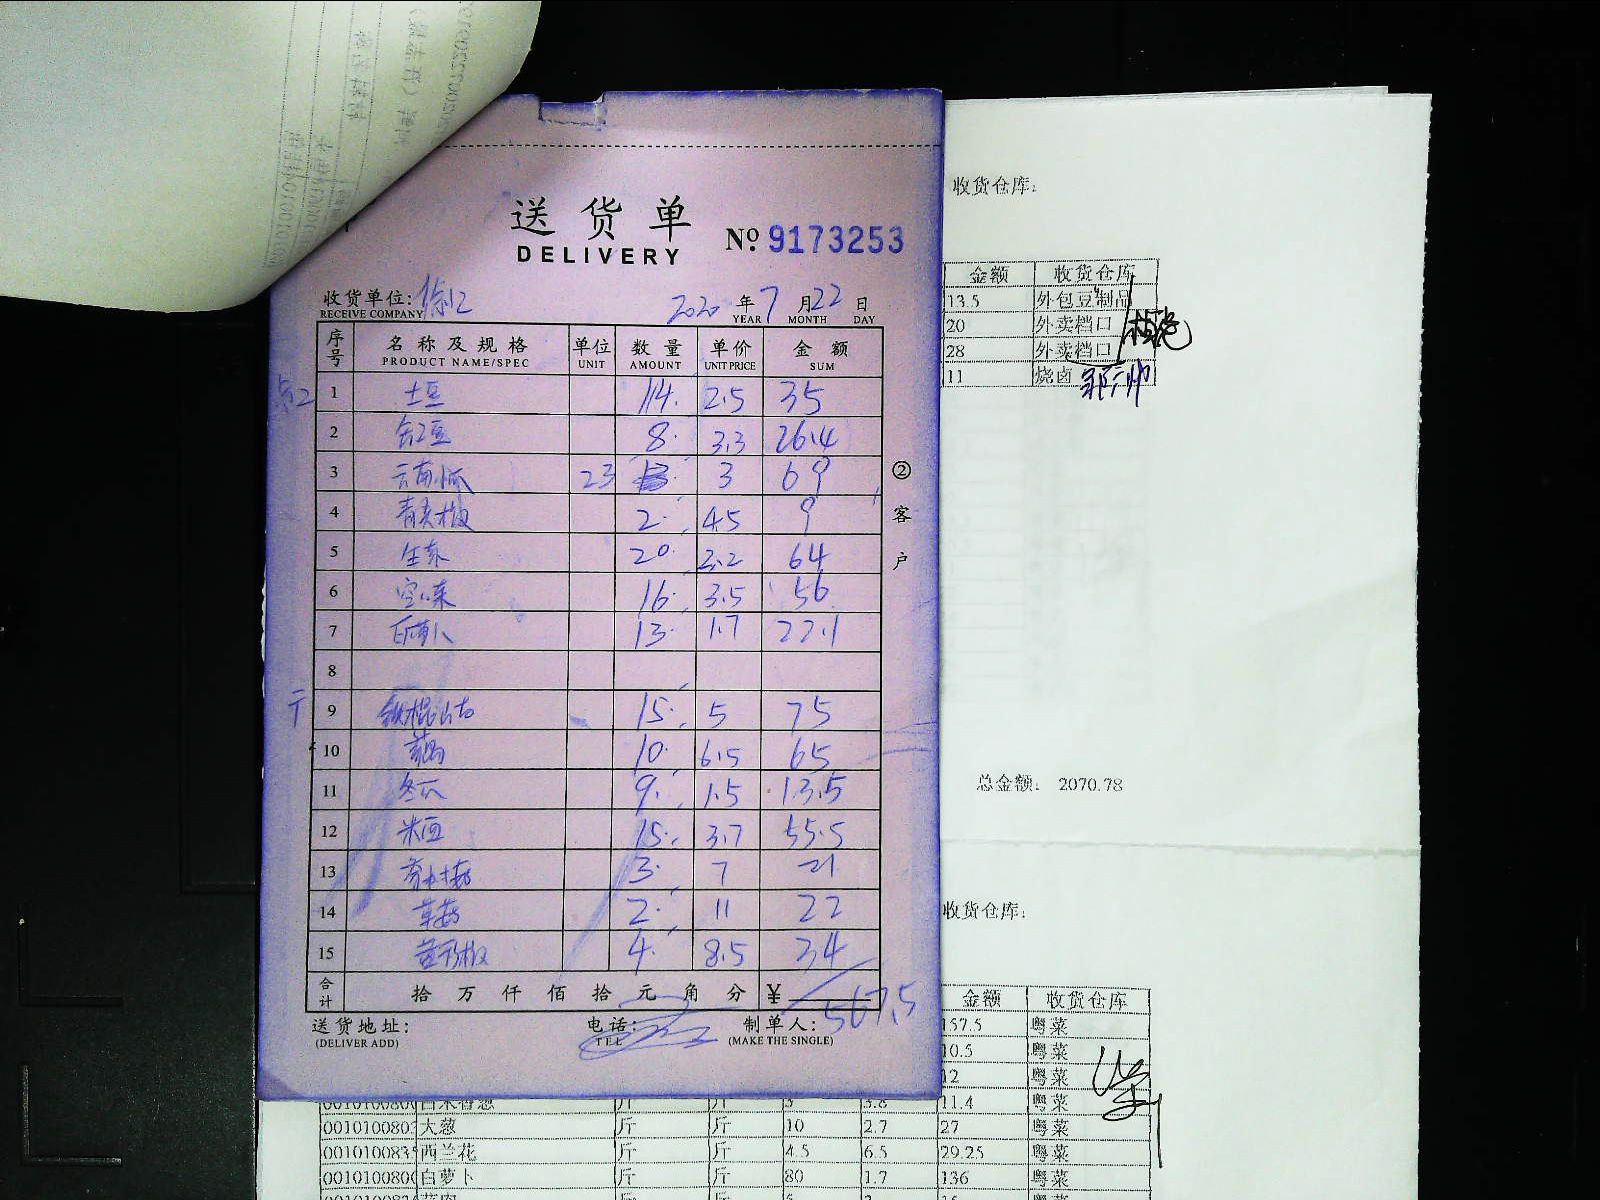 送货单
DELIVERY
No. 9173253
收货单位:
RECEIVE COMPANY
2020 年 7 月 22 日
YEAR MONTH DAY
序号 名称及规格 单位 数量 单价 金额
PRODUCT NAME/SPEC UNIT AMOUNT UNIT PRICE SUM
1 土豆 14. 2.5 35
2 豇豆 8. 3.3 26.4
3 云南小瓜 23 3 69
4 青尖椒 2. 4.5 9
5 生菜 20. 64
6 16. 3.5 56
7 白萝卜 13. 1.7 22.1
8
9 铁棍山药 15. 5 75
10 莲藕 10. 6.5 65
11 冬瓜 9. 1.5 13.5
12 15. 3.7 55.5
13 3. 7 21
14 草菇 2. 11 22
15 4. 8.5 34
合计 拾万仟佰拾元角分 ¥ 567.5
送货地址:
(DELIVER ADD)
电话:
TEL
制单人:
(MAKE THE SINGLE)
②客户
收货仓库:
金额 收货仓库
13.5 外包豆制品
20 外卖档口
28 外卖档口
11 烧卤
总金额: 2070.78
收货仓库:
金额 收货仓库
157.5 粤菜
10.5 粤菜
12 粤菜
斤 斤 3 3.8 11.4 粤菜
大葱 斤 斤 10 2.7 27 粤菜
西兰花 斤 斤 4.5 6.5 29.25 粤菜
白萝卜 斤 斤 80 1.7 136 粤菜